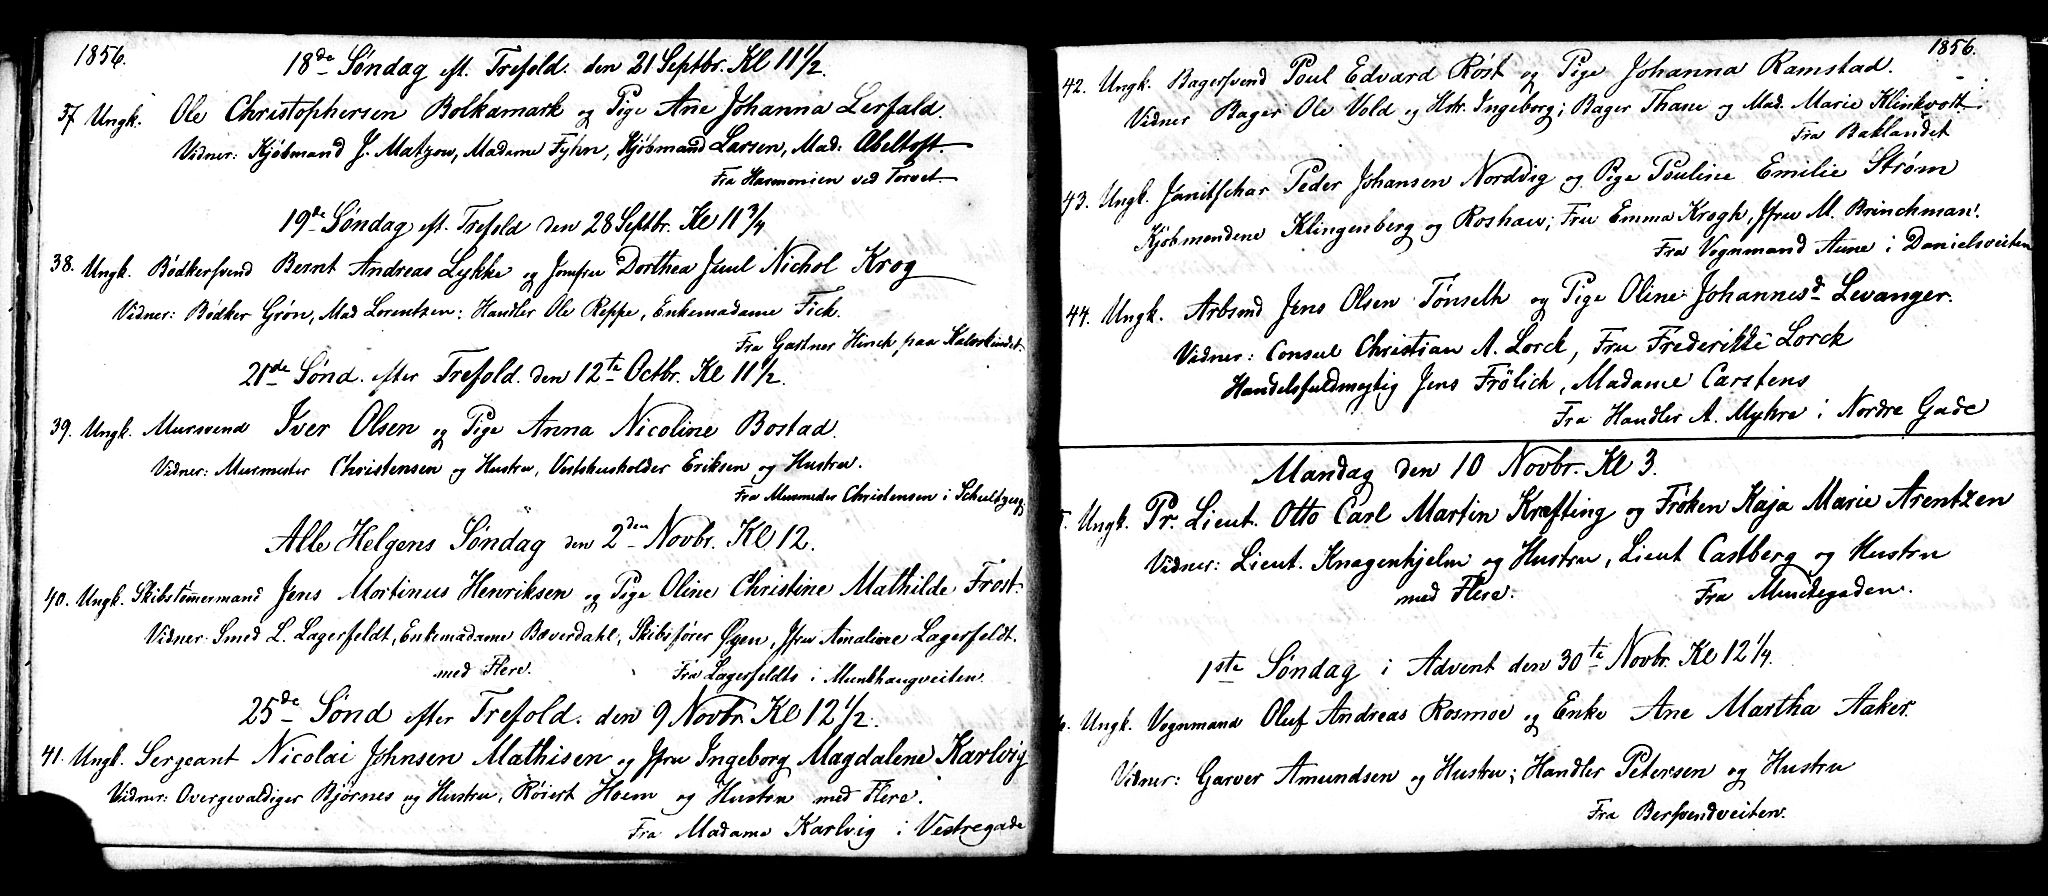 1856.
18de Søndag eft. Trefold. den 21 Septbr. Kl 11 1/2.
37 Ungk. Ole Christophersen Bolkamark og Pige Ane Johanna Lerfald.
Vidner: Kjøbmand J. Matzow, Madame Fyhn, Kjøbmand Larsen, Mad: Abeltoft.
Fra Harmonien ved Torvet
19de Søndag eft. Trefold den 28 Septbr. Kl 11 3/4
38. Ungk. Bødkersvend Bernt Andreas Lykke og Jomfru Dorthea Juul Nichol Krog
Vidner: Bødker Grøn, Mad Lorentzen: Handler Ole Reppe, Enkemadame Fick.
Fra Gartner Hinck paa Kalvskindet
21de Sønd. efter Trefold. den 12te Octbr. Kl 11 1/2.
39. Ungk. Mursvend Iver Olsen og Pige Anna Nicoline Bostad.
Vidner: Murmester Christensen og Hustru, Vertshusholder Eriksen og Hustru.
Fra Murmester Christensen i
Alle Helgens Søndag den 2den Novbr. Kl 12.
40. Ungk. Skibstømmermand Jens Mortinus Henriksen og Pige Oline Christine Mathilde Frost.
Vidner: Smed L. Lagerfeldt, Enkemadame Bæverdahl, Skibsfører Øyen, Jfru Amaline Lagerfeldt.
med Flere. Fra Lagerfeldts i Munkhaugveiten
25de Sønd efter Trefold. den 9 Novbr. Kl 12 1/2.
41. Ungk. Sergeant Nicolai Johnsen Mathisen og Jfru Ingeborg Magdalene Karlvig
Vidner: Overgevaldiger Bjørnes og Hustru, Hoem og Hustru med Flere.
Fra Madame Karlvig i Vestregade
1856.
42. Ungk. Bagersvend Poul Edvard Røst og Pige Johanna Ramstad.
Vidner Bager Ole Vold og Hstr. Ingeborg; Bager Thane og Mad. Marie Klinkvort
Fra Baklandet
43. Ungk. Janitschar Peder Johansen Nordvig og Pige Pouline Emilie Strøm
Kjøbmendene Klingenberg og Roshauw; Fru Emma Krogh, Jfru M. Brinchman.
Fra Vognmand Aune i Danielsveiten
44. Ungk. Arbsmd Jens Olsen Tønseth og Pige Oline Johannesd Levanger.
Vidner: Consul Christian A. Lorck, Fru Frederikke Lorck
Handelsfuldmegtig Jens Frölich, Madame Carstens
Fra Handler A. Myhre i Nordre Gade
Mandag den 10 Novbr. Kl 3.
Ungk. Pr. Lieut. Otto Carl Martin Krefting og Frøken Kaja Marie Arentzen
Vidner: Lieut. Knagenhjelm og Hustru, Lieut Castberg og Hustru
med Flere. Fra Munkegaden.
1ste Søndag i Advent den 30te Novbr. Kl 12 1/4.
Ungk. Vognmand Oluf Andreas Rosmoe og Enke Ane Martha Aaker.
Vidner: Garver Amundsen og Hustru; Handler Petersen og Hustru
Fra Bersvendveiten.